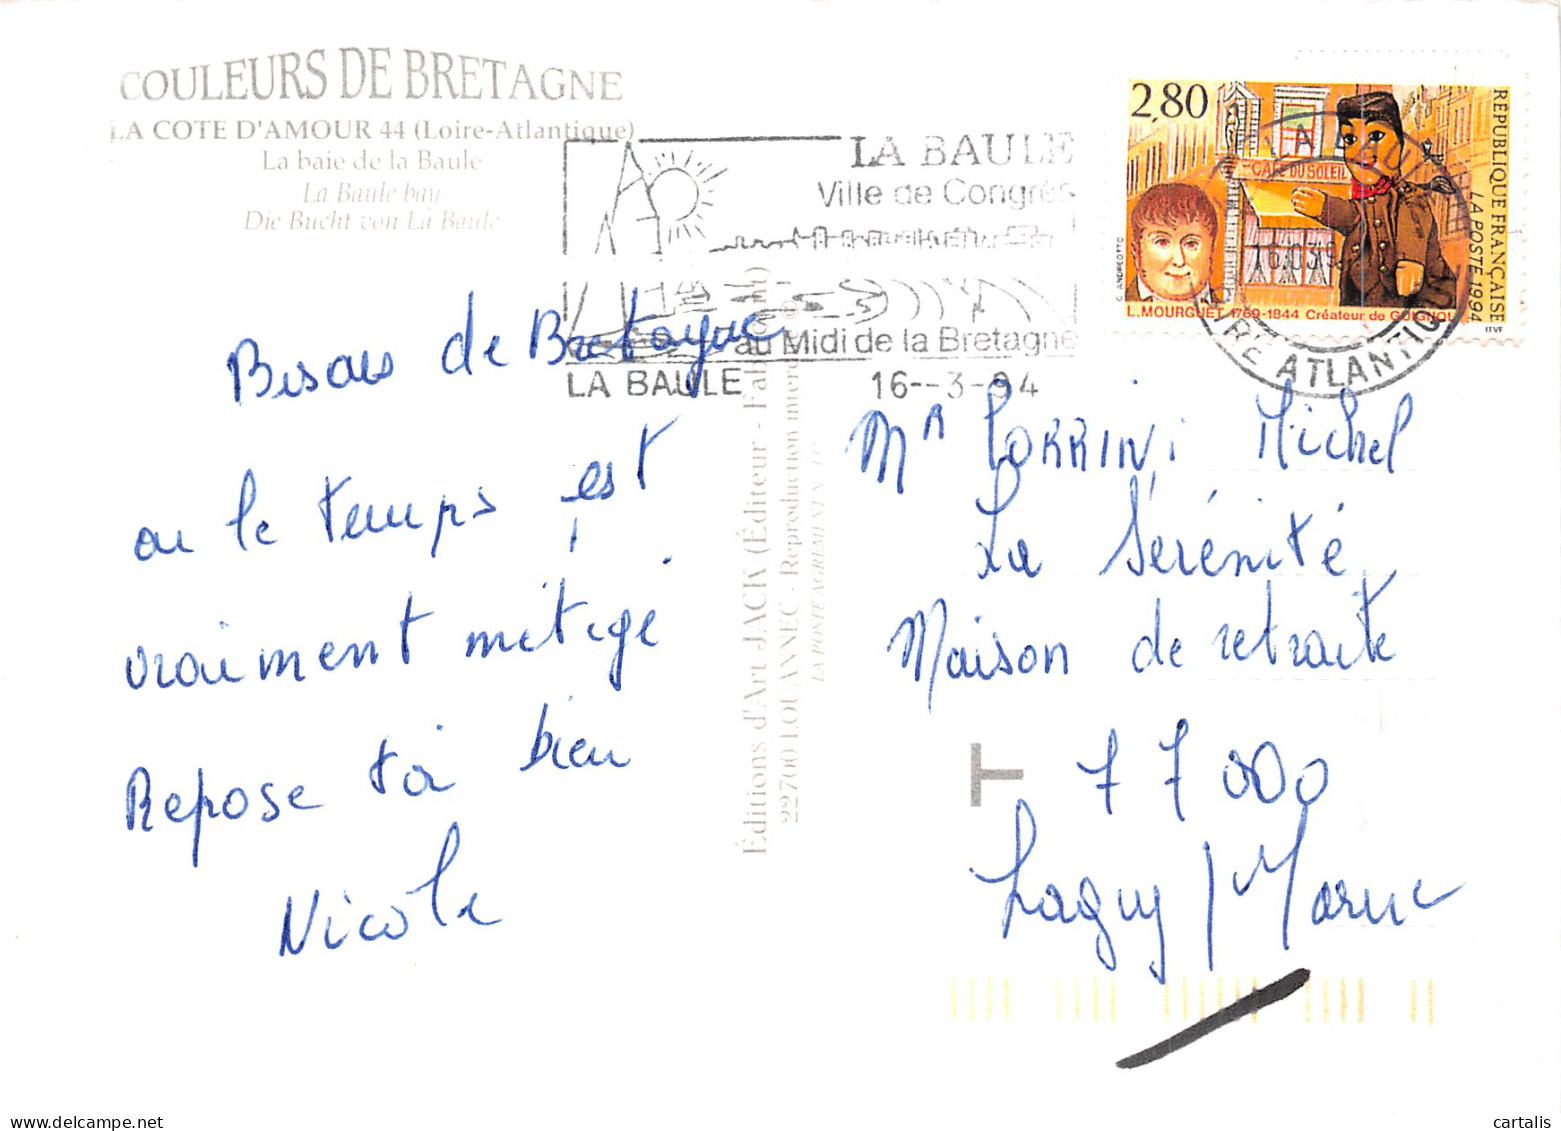 COULEURS DE BRETAGNE
LA COTE D'AMOUR 44 (Loire-Atlantique)
La baie de la Baule
La Baule bay
Die Bucht von La Baule
LA BAULE
Ville de Congrès
au Midi de la Bretagne
LA BAULE 16--3-94
2,80
CAFE DU SOLEIL
REPUBLIQUE FRANÇAISE
LA POSTE 1994
C. ANDREOTTO
L. MOURGUET 1769-1844 Créateur de GUIGNOL
ITVF
ATLANTIQUE
Bisous de Bretagne
ou le temps est
vraiment mitigé.
Repose toi bien
Nicole
Éditions d'Art JACK (Éditeur -
22700 LOUANNEC - Reproduction
LA POSTE AGREMENT N°
Mr TORRINI Michel
La Sérénité
Maison de retraite
T
77000
Lagny / Marne
cartalis
www.delcampe.net